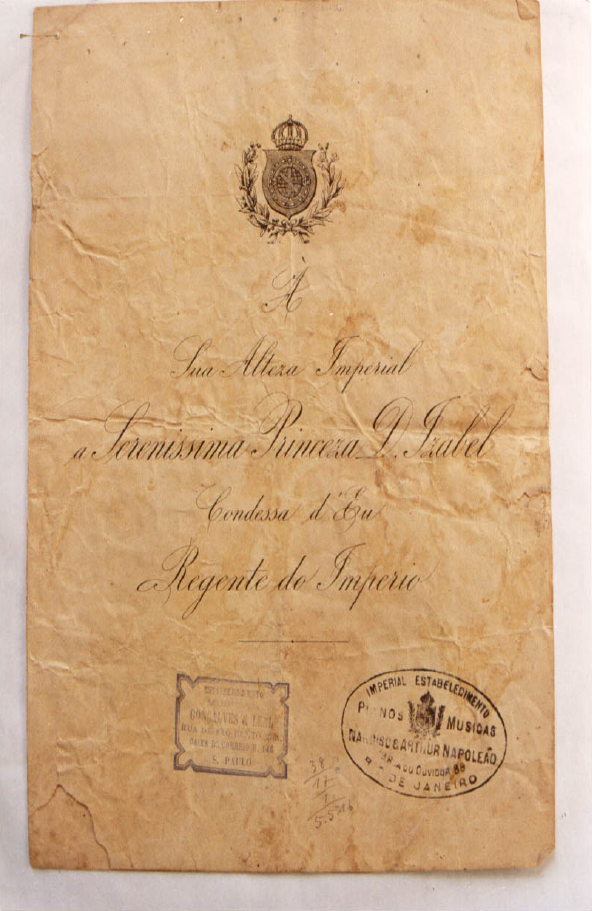 À
Sua Alteza Imperial
a Serenissima Princeza D. Izabel
Condessa d'Eu
Regente do Imperio
ESTABELECIMENTO
GONÇALVES & LEAL
S. PAULO
IMPERIAL ESTABELECIMENTO
PIANOS MUSICAS
NARCISO & ARTHUR NAPOLEÃO
RUA DO OUVIDOR 89
RIO DE JANEIRO